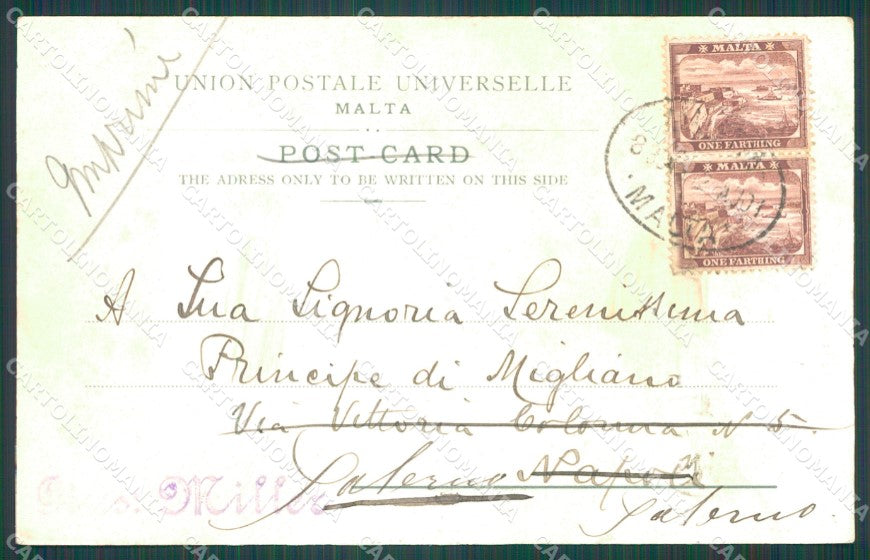 Imprimé
UNION POSTALE UNIVERSELLE
MALTA
POST CARD
THE ADRESS ONLY TO BE WRITTEN ON THIS SIDE
MALTA
ONE FARTHING
MALTA
ONE FARTHING
MALTA
A Sua Signoria Serenissima
Principe di Migliano
Via Vittoria Colonna N 5.
Salerno Napoli
Salerno.
Miller
CARTOLINOMANIA